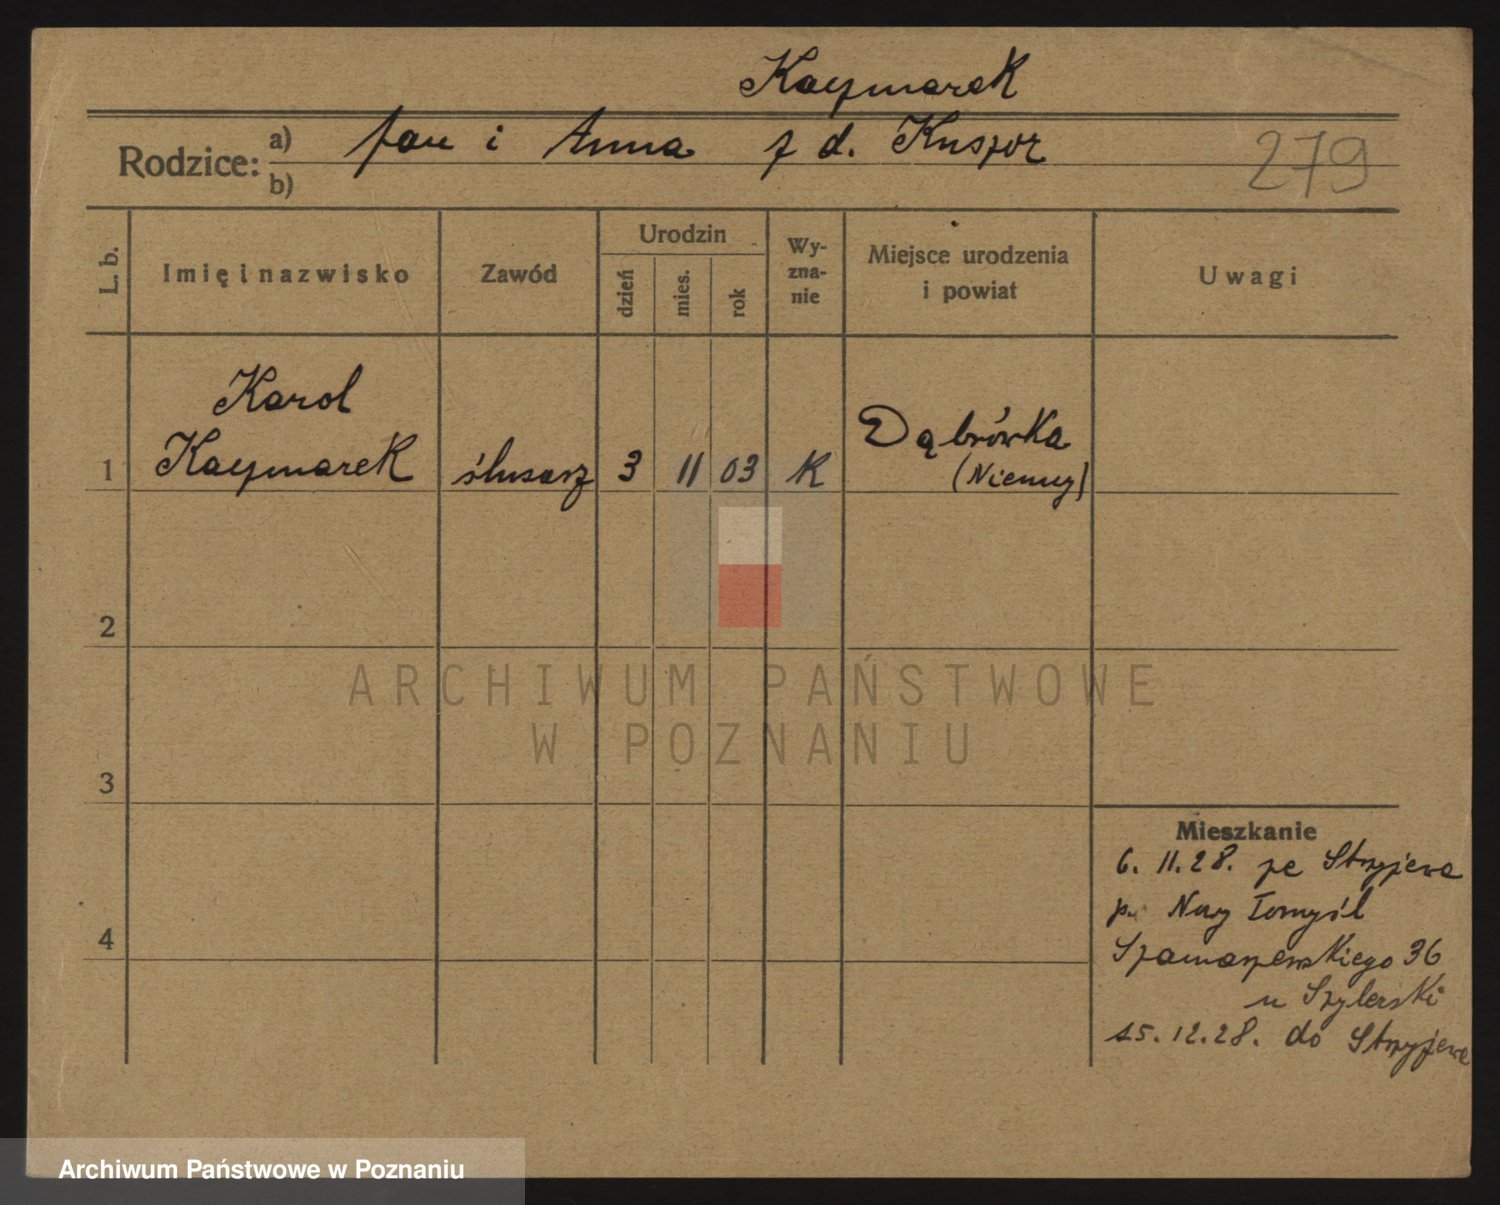 Kaczmarek
Rodzice: a) Jan i Anna z d. Kuszor
b)
279
L. b.
Imię i nazwisko
Zawód
Urodzin
dzień
mies.
rok
Wy-
zna-
nie
Miejsce urodzenia
i powiat
Uwagi
1
Karol
Kaczmarek
ślusarz
3
11
03
K
Dąbrówka
(Niemcy)
2
3
4
Mieszkanie
6. 11. 28. ze Stryjewa
p. Nowy Tomyśl
Szamarzewskiego 36
u Szylerski
15. 12. 28. do Stryjewa
ARCHIWUM PAŃSTWOWE
W POZNANIU
Archiwum Państwowe w Poznaniu